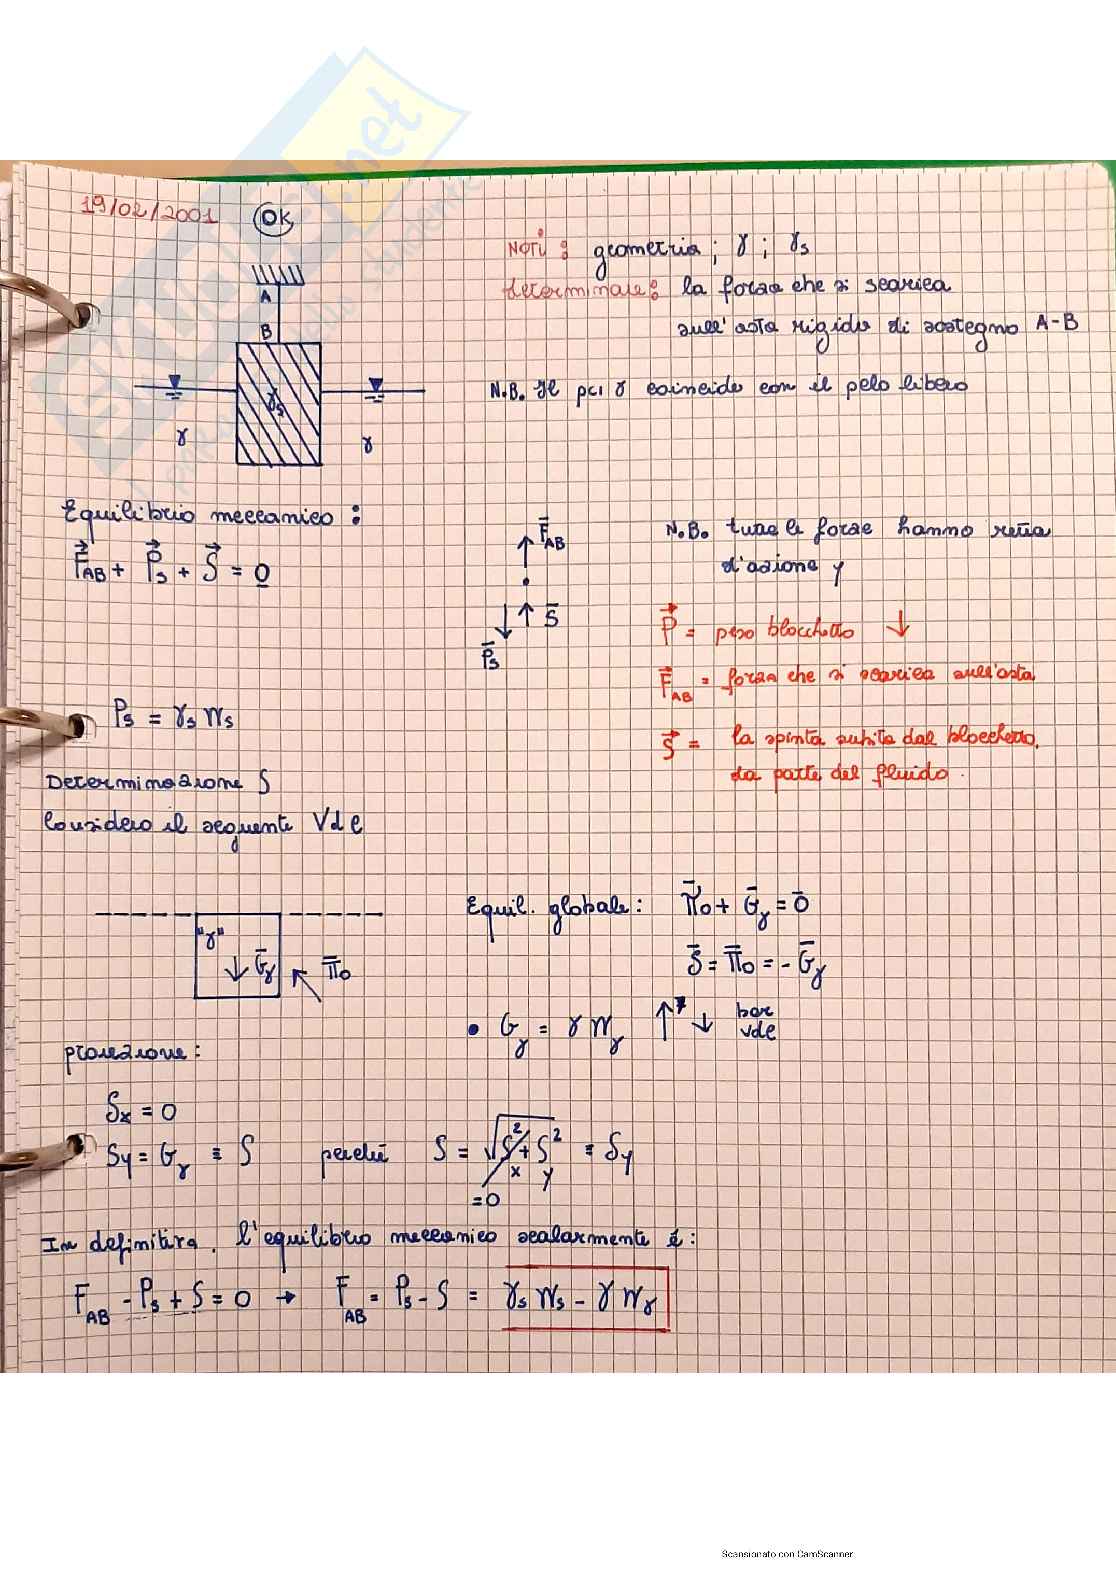 19/02/2001 OK
NOTI: geometria; γ; γs
determinare: la forza che si scarica
sull'asta rigida di sostegno A-B
N.B. Il pci γ coincide con il pelo libero
A
B
γs
γ γ
Equilibrio meccanico:
F⃗AB + P⃗s + S⃗ = 0
F̄AB
S̄
P̄s
N.B. tutte le forze hanno retta
d'azione y
P⃗ = peso blocchetto ↓
F⃗AB = forza che si scarica sull'asta
S⃗ = la spinta subita dal blocchetto,
da parte del fluido.
Ps = γs Ws
Determinazione S
Considero il seguente Vdc
"γ"
Ḡγ
Π̄0
Equil. globale: Π̄0 + Ḡγ = 0̄
S̄ = Π̄0 = - Ḡγ
• Gγ = γ Wγ ↑ ↓ bar
vdc
proiezione:
Sx = 0
Sy = Gγ = S perché S = √S²x + S²y = Sy
=0
In definitiva, l'equilibrio meccanico scalarmente è:
FAB - Ps + S = 0 → FAB = Ps - S = γs Ws - γ Wγ
SKUOLA.net
Scansionato con CamScanner